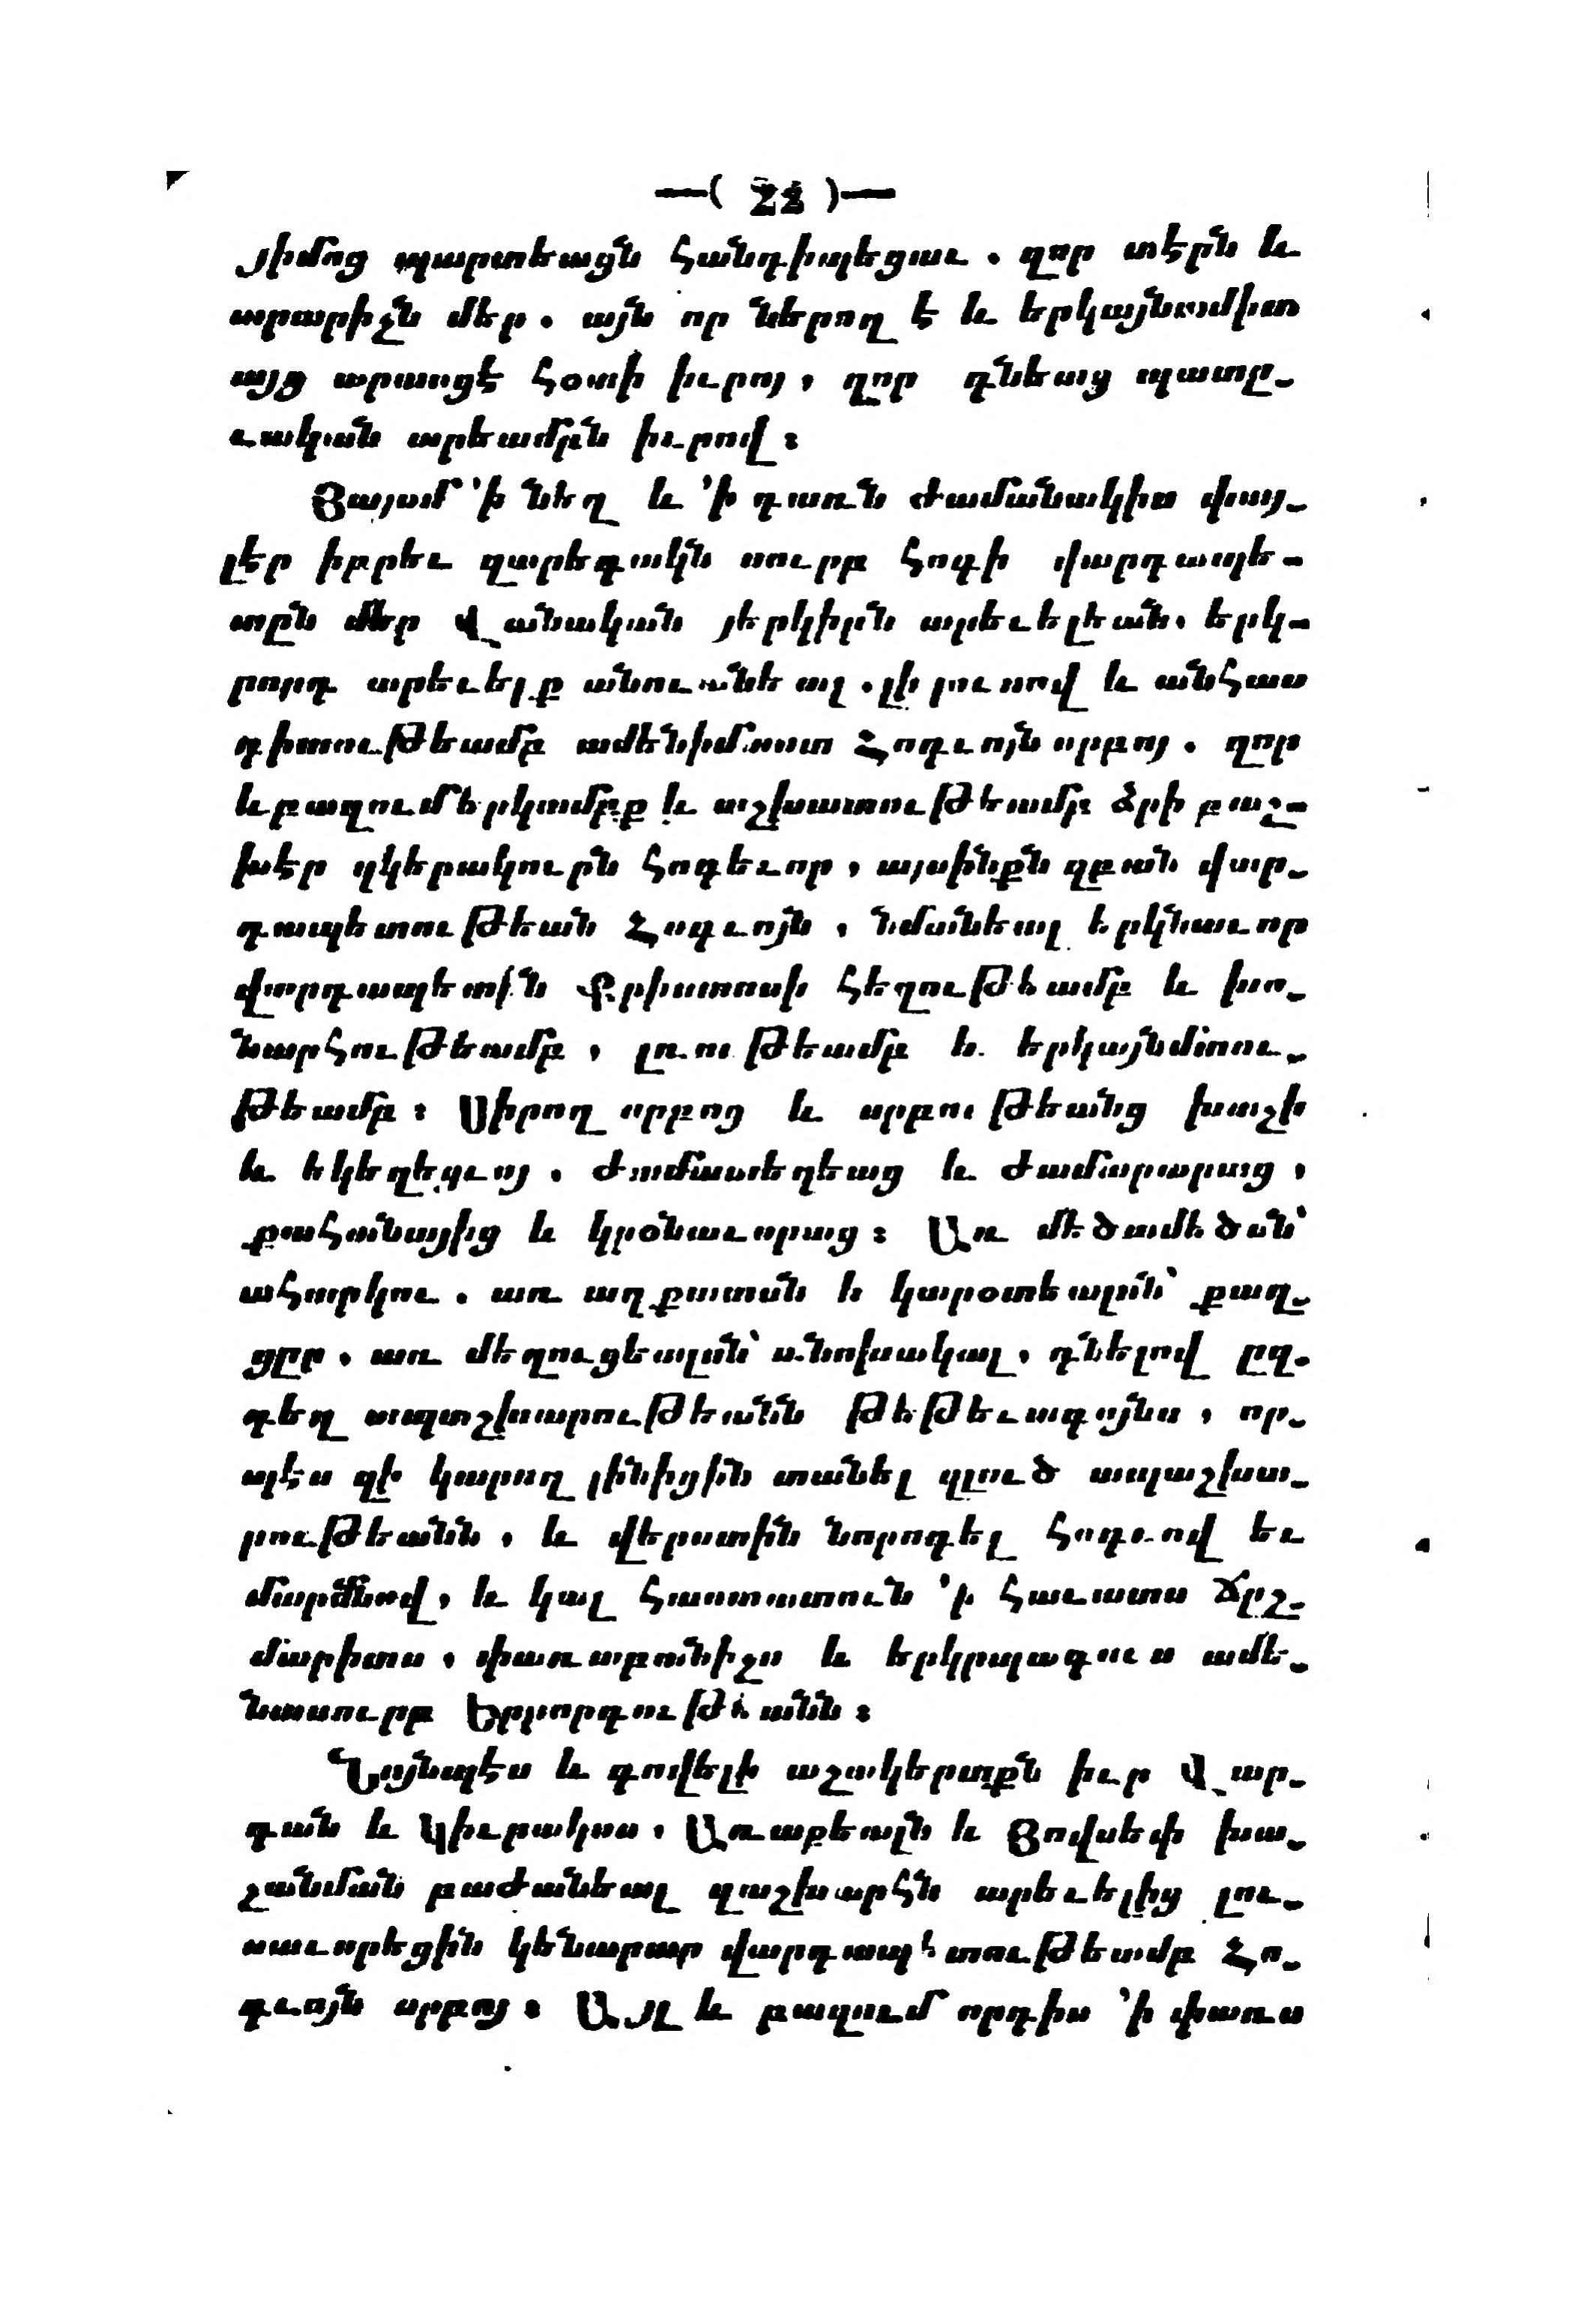 —( 22 )—
յիմոց պարտեացն հանդիպեցաւ . զոր տէրն և
արարիչն մեր . այն որ ներող է և երկայնամիտ
այց արասցէ հօտի իւրոյ , զոր գնեաց պատը_
ւական արեամբն իւրով ։
Յայսմ ՚ի նեղ և ՚ի դառն ժամանակիս փայ_
լէր իբրեւ զարեգակն սուրբ հոգի վարդապե_
տըն մեր Վանական յերկիրն արեւելեան, երկ_
րորդ արեւելք անուանեալ . լի լուսով և անհաս
գիտութեամբ ամենիմաստ Հոգւոյն սրբոյ . զոր
և բազում երկամբք և աշխատութեամբ ձրի բաշ_
խէր զկերակուրն հոգեւոր , այսինքն զբան վար_
դապետութեան Հոգւոյն , նմանեալ երկնաւոր
վարդապետին Քրիստոսի հեղութեամբ և խո_
նարհութեամբ , լռութեամբ և երկայնմտու_
թեամբ ։ Սիրող սրբոց և սրբութեանց խաչի
և եկեղեցւոյ , ժամատեղեաց և ժամարարաց ,
քահանայից և կրօնաւորաց ։ Առ մեծամեծսն՝
ահարկու . առ աղքատսն և կարօտեալսն՝ քաղ_
ցըր , առ մեղուցեալսն՝ անոխակալ , դնելով ըզ_
գեղ ապաշխարութեանն թեթեւագոյնս , որ_
պէս զի կարող լինիցին տանել զլուծ ապաշխա_
րութեանն , և վերստին նորոգել հոգւով եւ
մարմնով , և կալ հաստատուն ՚ի հաւատս ճըշ_
մարիտս , փառաբանիչս և երկրպագուս ամե_
նասուրբ Երրորդութեանն ։
Նոյնպէս և գովելի աշակերտքն իւր Վար_
դան և Կիւրակոս , Առաքեալն և Յովսեփ խա_
չանման բաժանեալ զաշխարհն արեւելից լու_
սաւորեցին կենարար վարդապետութեամբ Հո_
գւոյն սրբոյ ։ Այլ և բազում որդիս ՚ի փառս